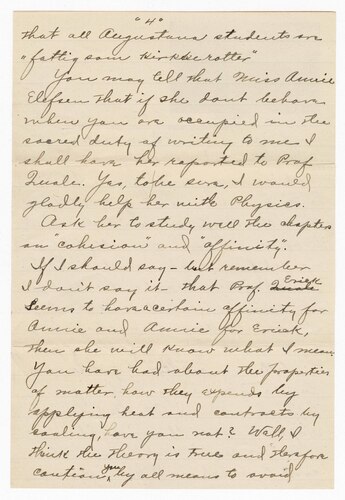 "4"
that all Augustana students are
"fattig som kirkerotter"
You may tell that Miss Annie
Elefsen that if she dont behave
when you are occupied in the
sacred duty of writing to me I
shall have her raported to Prof
Quale. Yes, to be sure, I would
gladly help her with Physics.
Ask her to study well the chapters
on "cohesion" and "affinity".
If I should say - but remember
I don't say it - that Prof. Erick
seems to have a certain affinity for
Annie and Annie for Erick,
then she will know what I mean.
You have had about the properties
of matter how they expends by
applying heat and contracts by
cooling, have you not? Well, I
think the theory is true and therefore
caution you by all means to avoid